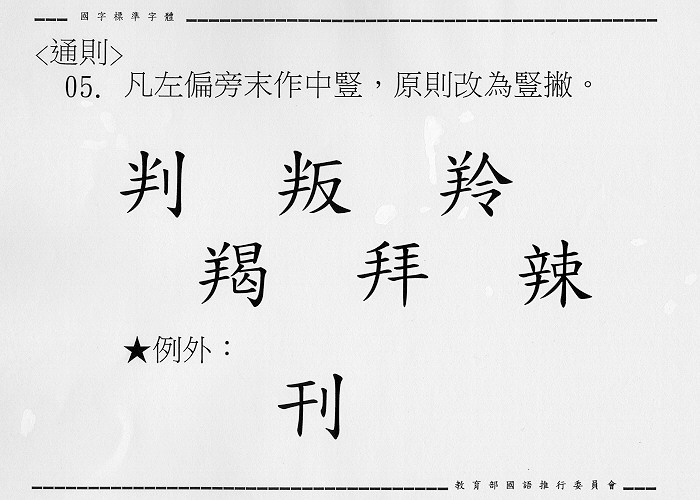 國字標準字體
<通則>
05. 凡左偏旁末作中豎，原則改為豎撇。
判 叛 羚
羯 拜 辣
★例外：
刊
教育部國語推行委員會